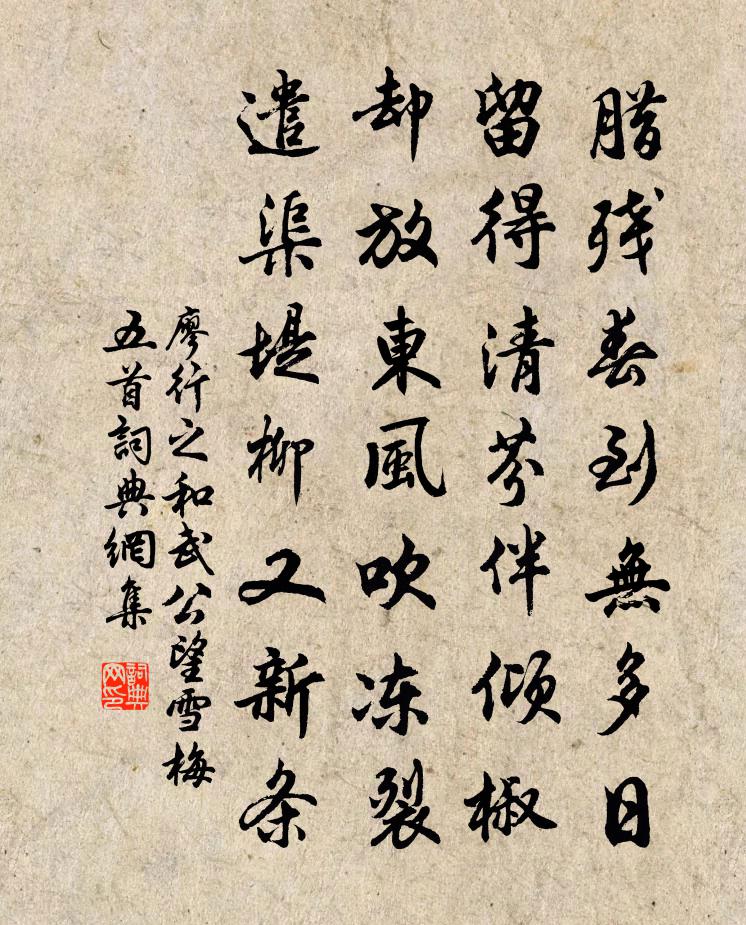 腊残春到無多日
留得清芬伴倾椒
却放東風吹冻裂
遣渠堤柳又新条
廖行之和武公望雪梅
五首詞典網集
詞典网印